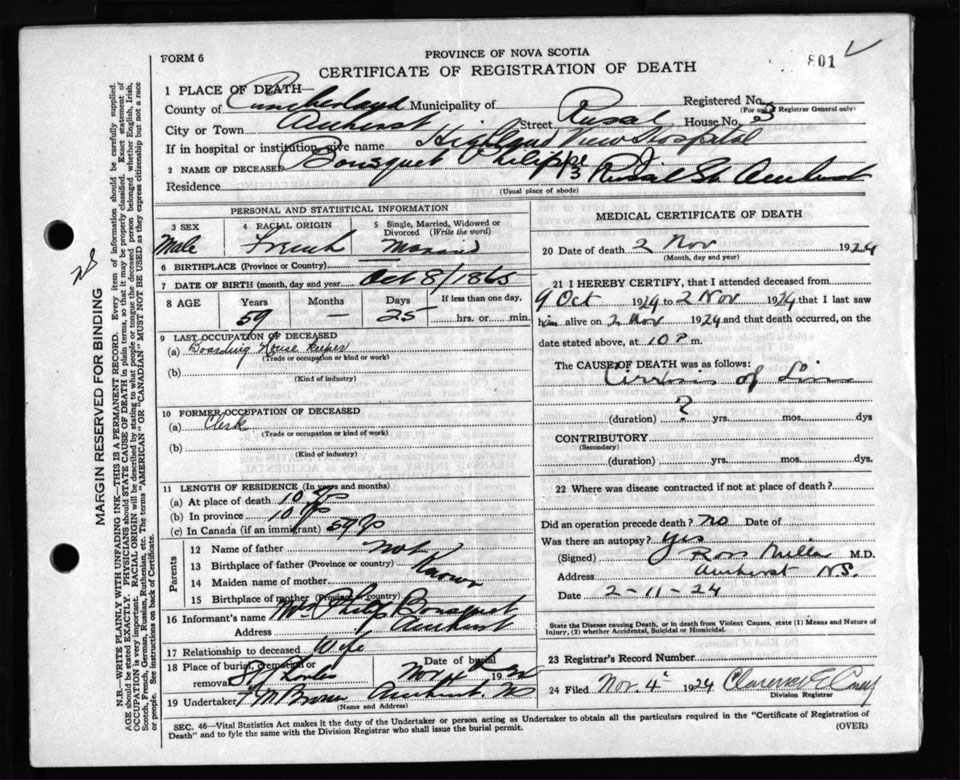 FORM 6
PROVINCE OF NOVA SCOTIA
CERTIFICATE OF REGISTRATION OF DEATH
801
1 PLACE OF DEATH—
County of Cumberland Municipality of Registered No. (For use of Registrar General only)
City or Town Amherst Street Rusal House No. 3
If in hospital or institution, give name Highland View Hospital
2 NAME OF DECEASED Bousquet Philippe
Residence 3 Rusal St Amherst
(Usual place of abode)
PERSONAL AND STATISTICAL INFORMATION
3 SEX Male
4 RACIAL ORIGIN French
5 Single, Married, Widowed or Divorced (Write the word) Married
6 BIRTHPLACE (Province or Country)
7 DATE OF BIRTH (month, day and year) Oct 8/1865
8 AGE Years 59 Months — Days 25 If less than one day, hrs. or min.
9 LAST OCCUPATION OF DECEASED
(a) Boarding House Keeper
(Trade or occupation or kind of work)
(b)
(Kind of industry)
10 FORMER OCCUPATION OF DECEASED
(a) Clerk
(Trade or occupation or kind of work)
(b)
(Kind of industry)
11 LENGTH OF RESIDENCE (In years and months)
(a) At place of death 10 yrs
(b) In province 10 yrs
(c) In Canada (if an immigrant) 59 y
Parents
12 Name of father Not
13 Birthplace of father (Province or country) Known
14 Maiden name of mother
15 Birthplace of mother (Province or country)
16 Informant's name Mrs Philip Bousquet
Address Amherst
17 Relationship to deceased Wife
18 Place of burial, cremation or removal St Charles Date of burial Nov 4 19
19 Undertaker F M Brown Amherst NS
(Name and Address)
MEDICAL CERTIFICATE OF DEATH
20 Date of death 2 Nov 1924
(Month, day and year)
21 I HEREBY CERTIFY, that I attended deceased from
9 Oct 1924 to 2 Nov 1924 that I last saw
him alive on 2 Nov 1924 and that death occurred, on
date stated above, at 10 P. m.
The CAUSE OF DEATH was as follows:
Cirrhosis of Liver
(duration) ? yrs. mos. dys
CONTRIBUTORY
(Secondary)
(duration) yrs. mos. dys.
22 Where was disease contracted if not at place of death?
Did an operation precede death? no Date of
Was there an autopsy? yes
(Signed) Ross Millar M.D.
Address Amherst N.S.
Date 2-11-24
State the Disease causing Death, or in death from Violent Causes, state (1) Means and Nature of
Injury, (2) whether Accidental, Suicidal or Homicidal.
23 Registrar's Record Number
24 Filed Nov. 4 1924 Clarence E Casey
Division Registrar
SEC. 46—Vital Statistics Act makes it the duty of the Undertaker or person acting as Undertaker to obtain all the particulars required in the "Certificate of Registration of
Death" and to fyle the same with the Division Registrar who shall issue the burial permit.
(OVER)
MARGIN RESERVED FOR BINDING
N.B.—WRITE PLAINLY WITH UNFADING INK—THIS IS A PERMANENT RECORD. Every item of information should be carefully supplied.
AGE should be stated EXACTLY. PHYSICIANS should STATE CAUSE OF DEATH in plain terms, so that it may be properly classified. Exact statement of
OCCUPATION is very important. RACIAL ORIGIN will be described by stating to what people or tongue the deceased person belonged whether English, Irish,
Scotch, French, German, Russian, Ruthenian, etc. The terms "AMERICAN" OR "CANADIAN" MUST NOT BE USED as they express citizenship but not a race
or people. See instructions on back of Certificate.